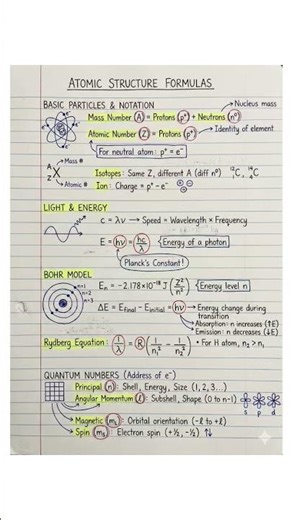 ATOMIC STRUCTURE FORMULAS
BASIC PARTICLES & NOTATION
Nucleus mass
Mass Number (A) = Protons (p⁺) + Neutrons (n⁰)
Atomic Number (Z) = Protons (p⁺)
Identity of element
For neutral atom: p⁺ = e⁻
A Mass #
X
Z Atomic #
Isotopes: Same Z, different A (diff n⁰) ¹²C, ¹⁴C
Ion: Charge = p⁺ - e⁻
LIGHT & ENERGY
c = λν → Speed = Wavelength × Frequency
E = hν = hc/λ {Energy of a photon}
Planck's Constant!
BOHR MODEL
n=1
n=2
n=3
Eₙ = -2.178×10⁻¹⁸ J (Z²/n²) {Energy level n}
ΔE = E_final - E_initial = hν → Energy change during
transition
Absorption: n increases (↑E)
Emission: n decreases (↓E)
Rydberg Equation: 1/λ = R (1/n₁² - 1/n₂²) • For H atom, n₂ > n₁
QUANTUM NUMBERS (Address of e⁻)
Principal (n): Shell, Energy, Size (1, 2, 3...)
Angular Momentum (ℓ): Subshell, Shape (0 to n-1)
s p d
Magnetic (mₗ): Orbital orientation (-ℓ to +ℓ)
Spin (mₛ): Electron spin (+½, -½) ↑↓